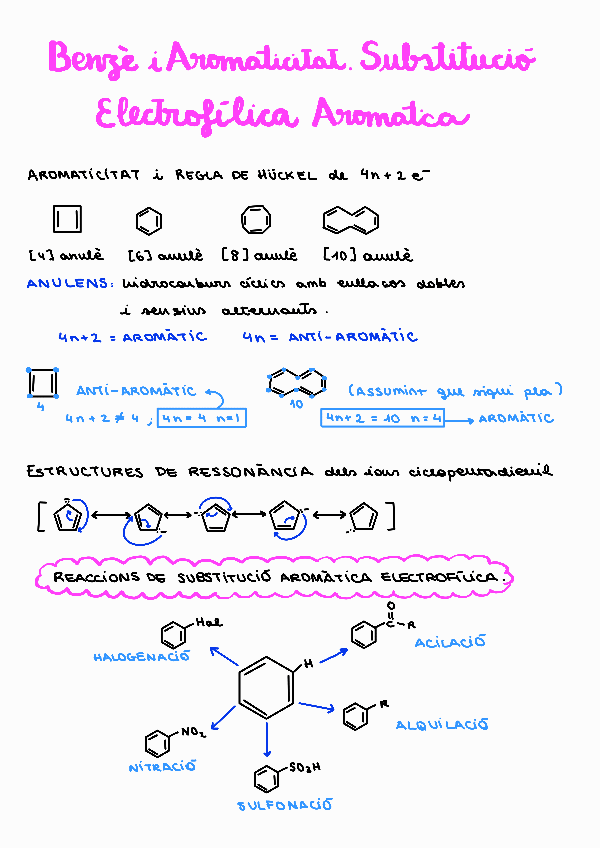 Benzè i Aromaticitat. Substitució
Electrofílica Aromàtca
AROMATICITAT i REGLA DE HÜCKEL de 4n+2 e⁻
[4] anulè [6] anulè [8] anulè [10] anulè
ANULENS: hidrocarburs cíclics amb enllaços dobles
i senzius alternants.
4n+2 = AROMÀTIC 4n = ANTI-AROMÀTIC
4
ANTI-AROMÀTIC
4n+2 ≠ 4 ; 4n = 4 n=1
10
(Assumint que sigui pla)
4n+2 = 10 n=4 → AROMÀTIC
ESTRUCTURES DE RESSONÀNCIA dels ions ciclopentadienil
REACCIONS DE SUBSTITUCIÓ AROMÀTICA ELECTROFÍLICA.
Hal
HALOGENACIÓ
O
C-R
ACILACIÓ
H
R
ALQUILACIÓ
NO₂
NITRACIÓ
SO₃H
SULFONACIÓ